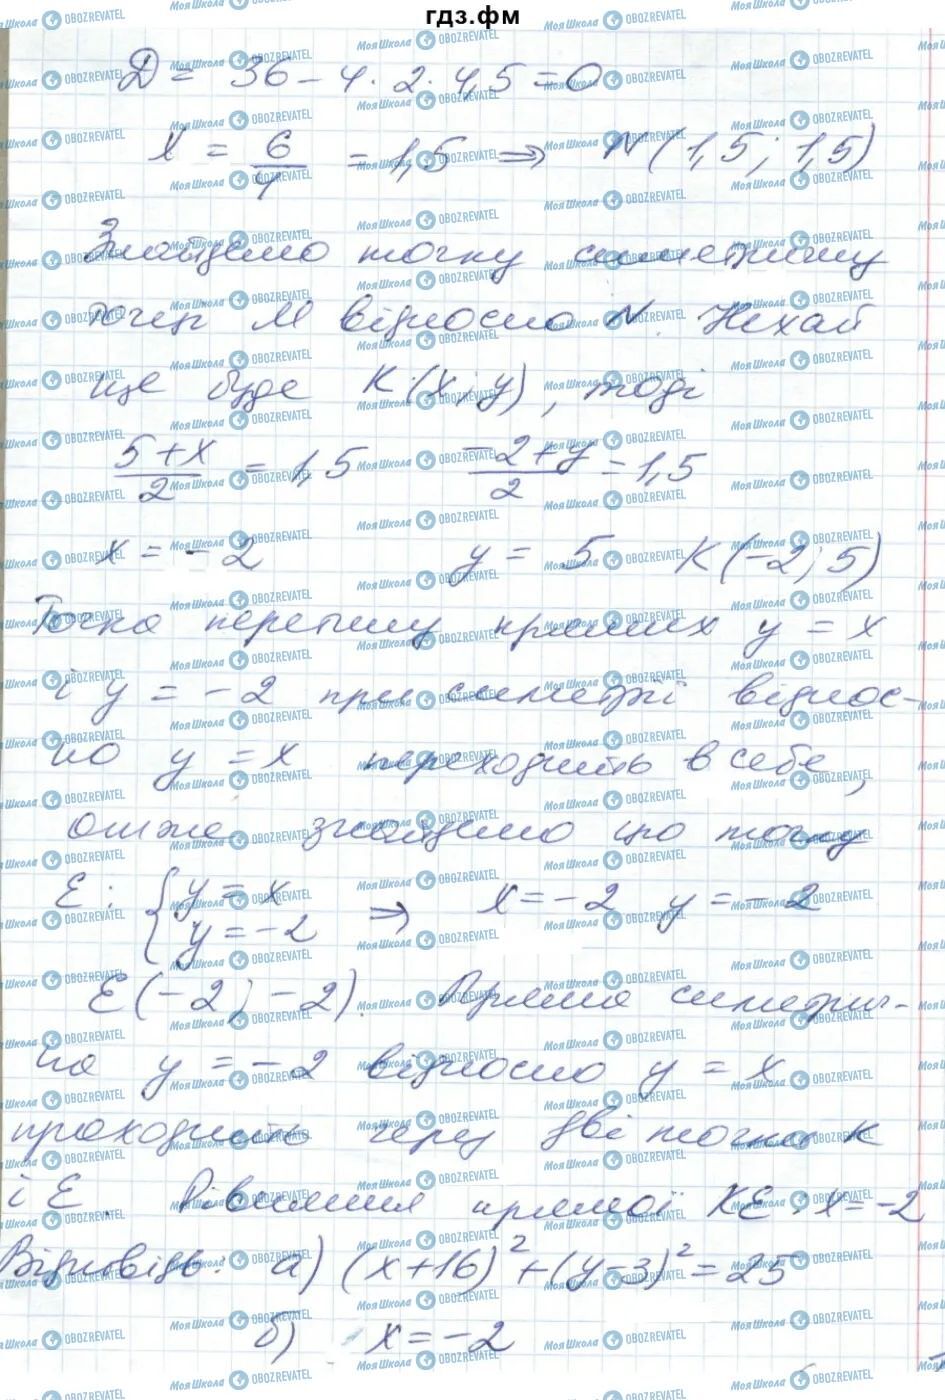 гдз.фм
D = 36 - 4 · 2 · 4,5 = 0
x = 6/4 = 1,5 ⇒ N(1,5; 1,5)
Знайдемо точку симетричну
точці M відносно N. Нехай
це буде K(x; y), тоді
(5+x)/2 = 1,5 (-2+y)/2 = 1,5
x = -2 y = 5 K(-2; 5)
Точка перетину прямих y = x
і y = -2 при симетрії віднос-
но y = x переходить в себе,
отже знайдемо цю точку
E: { y = x
y = -2 ⇒ x = -2 y = -2
E(-2; -2). Пряма симетрич-
на y = -2 відносно y = x
проходить через дві точки K
і E. Рівняння прямої KE: x = -2
Відповідь: а) (x+16)² + (y-3)² = 25
б) x = -2
Моя Школа OBOZREVATEL